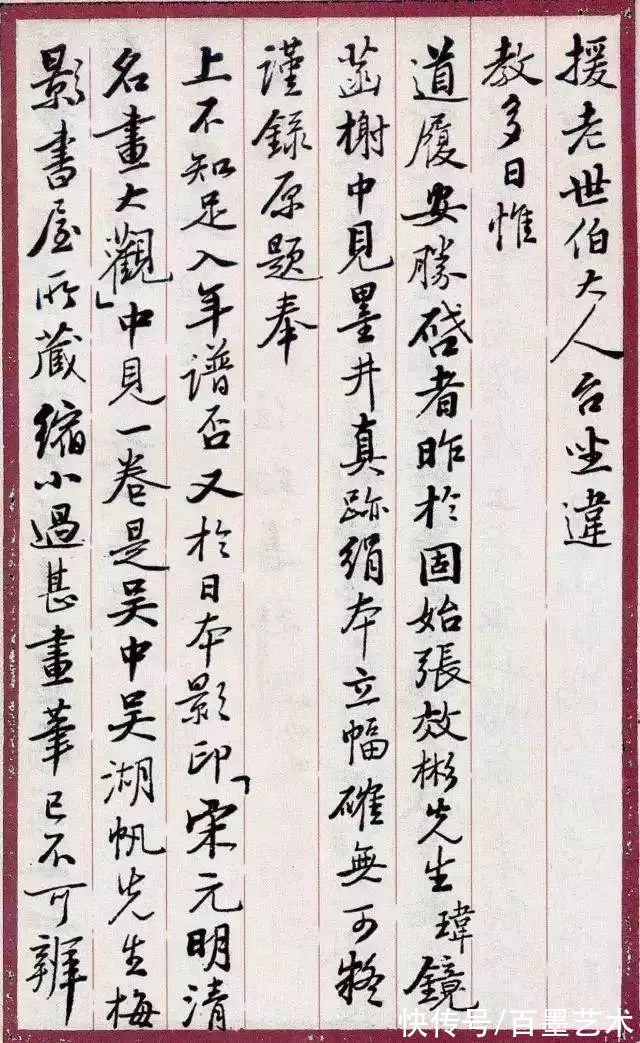 援老世伯大人台坐違
教多日惟
道履安勝啓者昨於固始張效彬先生瑋鏡
菡榭中見墨井真跡絹本立幅確無可疑
謹錄原題奉
上不知足入年譜否又於日本影印「宋元明清
名畫大觀」中見一卷是吳中吳湖帆先生梅
影書屋所藏縮小過甚畫筆已不可辨
快传号/百墨艺术